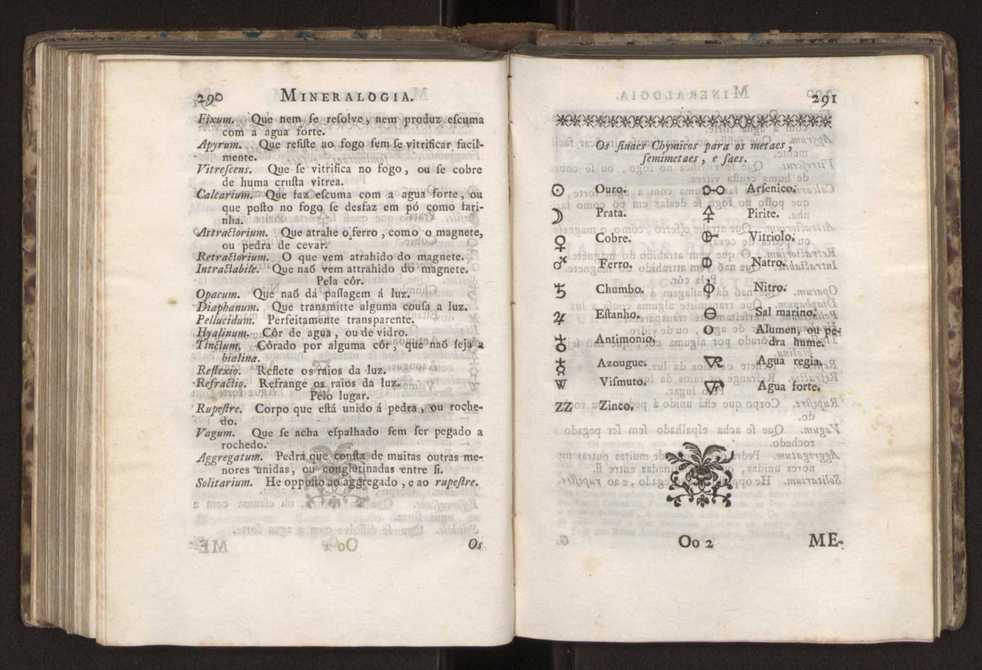 290 MINERALOGIA.
Fixum. Que nem ſe reſolve, nem produz eſcuma
com a agua forte.
Apyrum. Que reſiſte ao fogo ſem ſe vitrificar facil-
mente.
Vitreſcens. Que ſe vitrifica no fogo, ou ſe cobre
de huma cruſta vitrea.
Calcarium. Que faz eſcuma com a agua forte, ou
que poſto no fogo ſe desfaz em pó como fari-
nha.
Attractorium. Que atrahe o ferro, como o magnete,
ou pedra de cevar.
Retractorium. O que vem atrahido do magnete.
Intractabile. Que naõ vem attrahido do magnete.
Pela côr.
Opacum. Que naõ dá paſſagem á luz.
Diaphanum. Que transmitte alguma couſa a luz.
Pellucidum. Perfeitamente transparente.
Hyalinum. Côr de agua, ou de vidro.
Tinctum. Côrado por alguma côr, que naõ ſeja a
hialina.
Reflexio. Reflete os raios da luz.
Refractio. Refrange os raios da luz.
Pelo lugar.
Rupeſtre. Corpo que eſtá unido á pedra, ou roche-
do.
Vagum. Que ſe acha eſpalhado ſem ſer pegado a
rochedo.
Aggregatum. Pedra que conſta de muitas outras me-
nores unidas, ou conglutinadas entre ſi.
Solitarium. He oppoſto ao aggregado, e ao rupeſtre.
Os
291
Os ſinaes Chymicos para os metaes,
ſemimetaes, e ſaes.
☉ Ouro. Arſenico.
☽ Prata. Pirite.
♀ Cobre. Vitriolo.
♂ Ferro. Natro.
♄ Chumbo. Nitro.
♃ Eſtanho. Sal marino.
♁ Antimonio. Alumen, ou pe-
dra hume.
☿ Azougue. Agua regia.
W Viſmuto. Agua forte.
ZZ Zinco.
Oo 2 ME-